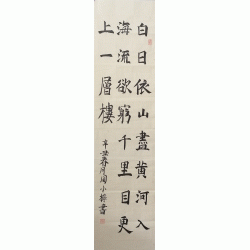 白日依山盡黃河入
海流欲窮千里目更
上一層樓
辛丑春月周小葵書